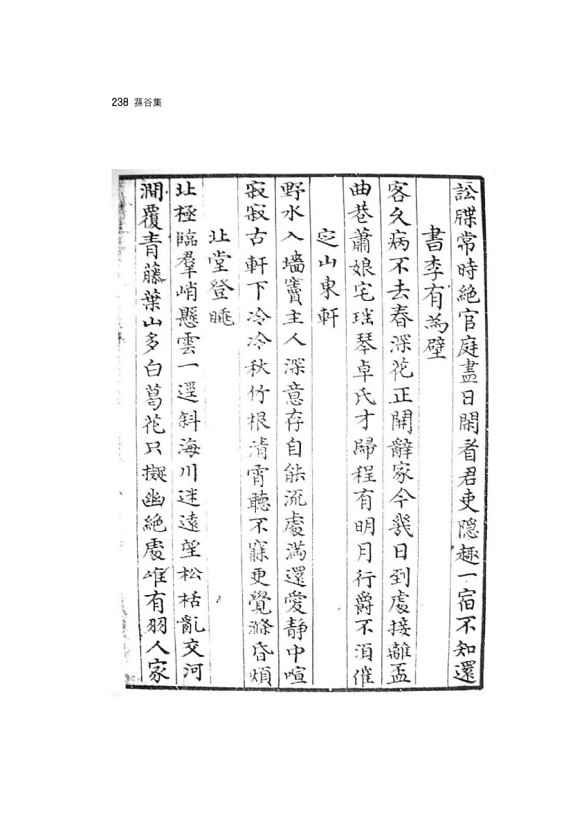 238 蓀谷集
訟牒常時絶官庭盡日閑看君吏隱趣一宿不知還
書李有為壁
客久病不去春深花正開辭家今幾日到處接離盃
曲巷蕭娘宅瑤琴卓氏才歸程有明月行爵不須催
定山東軒
野水入墻竇主人深意存自能流處滿還愛靜中喧
寂寂古軒下冷冷秋竹根清宵聽不寐更覺滌昏煩
北堂登眺
北極臨羣峭懸雲一逕斜海川迷遠望松枯亂交河
澗覆青藤葉山多白葛花只擬幽絶處唯有羽人家